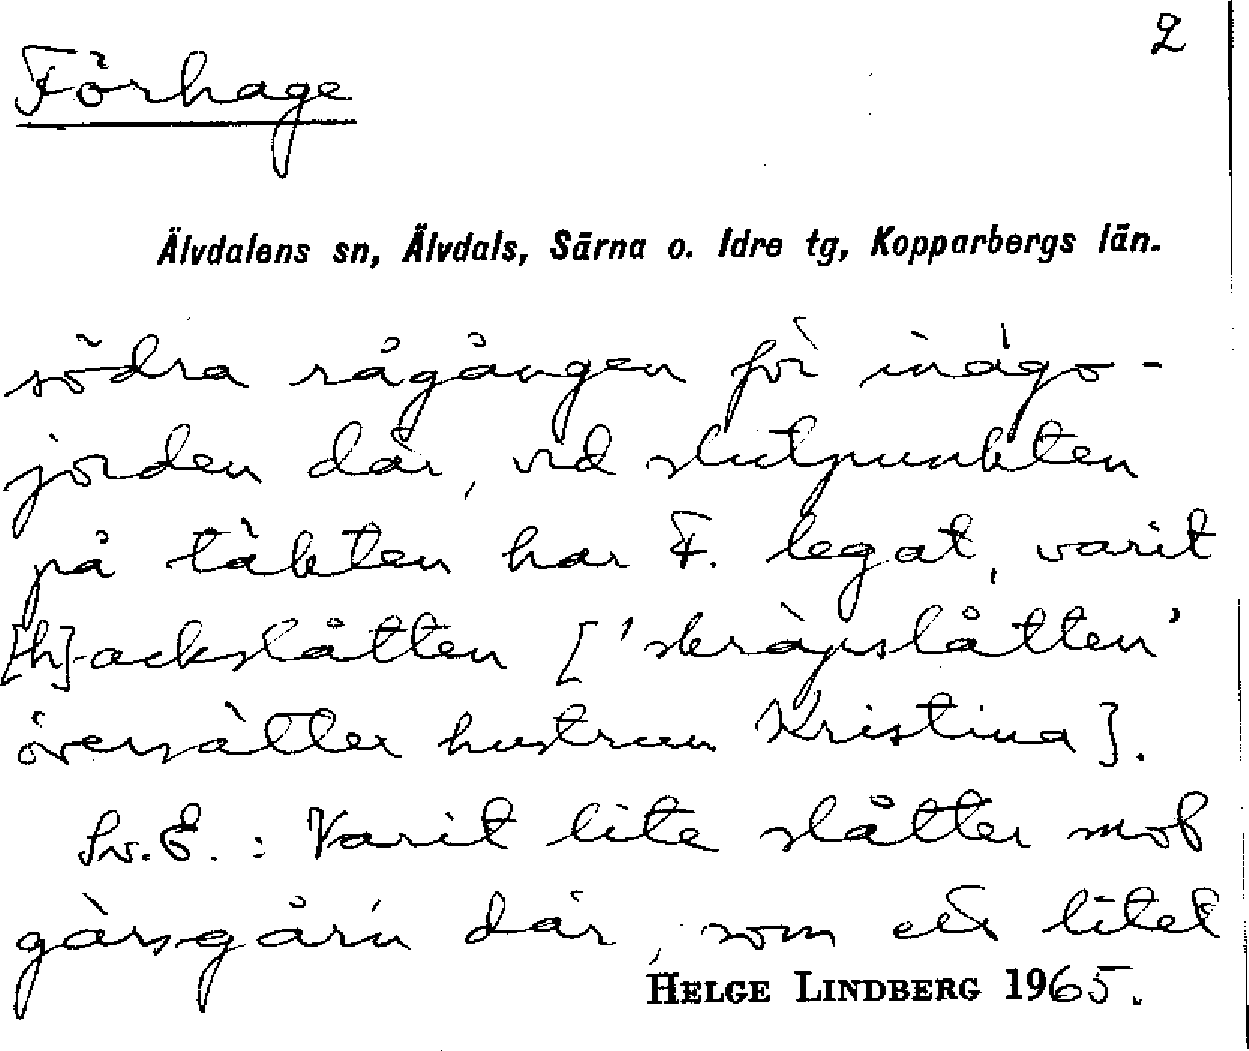 2
Förhage
Älvdalens sn, Älvdals, Särna o. Idre tg, Kopparbergs län.
södra rågången för inägo-
jorden där, vid slutpunkten
på täkten har F. legat, varit
[h]-ackslåtten ['skräpslåtten'
översätter hustrun Kristina].
Lv. E. : Varit lite slåtter mot
gärsgårn där, som ett litet
HELGE LINDBERG 1965.